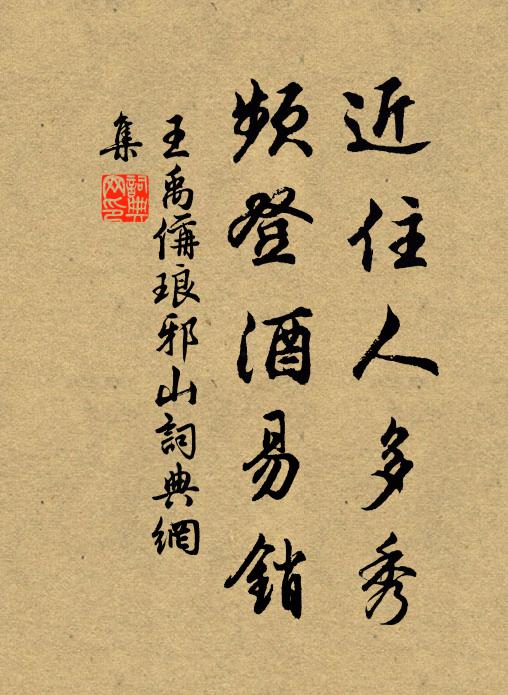 近住人多秀
頻登酒易銷
王禹偁琅邪山詞典網
集
詞典網印